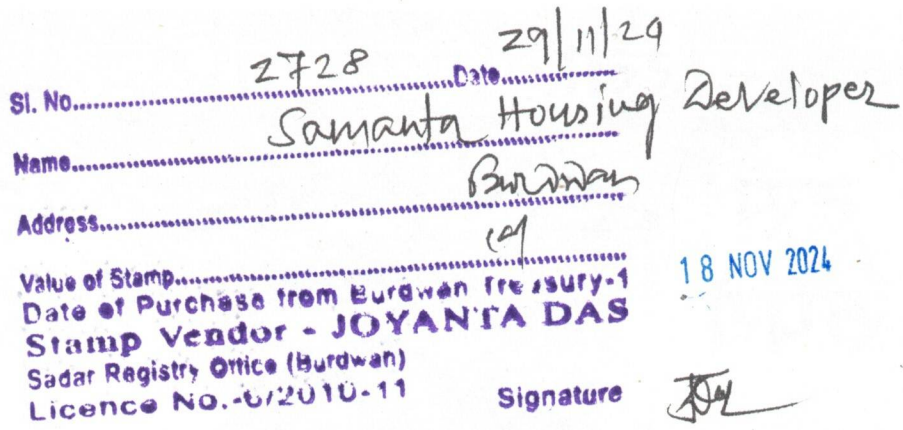 Sl. No. 2728 Date 29/11/24
Name Samanta Housing Developer
Address Burdwan
Value of Stamp
Date of Purchase from Burdwan Treasury-1 18 NOV 2024
Stamp Vendor - JOYANTA DAS
Sadar Registry Office (Burdwan)
Licence No.-6/2010-11
Signature